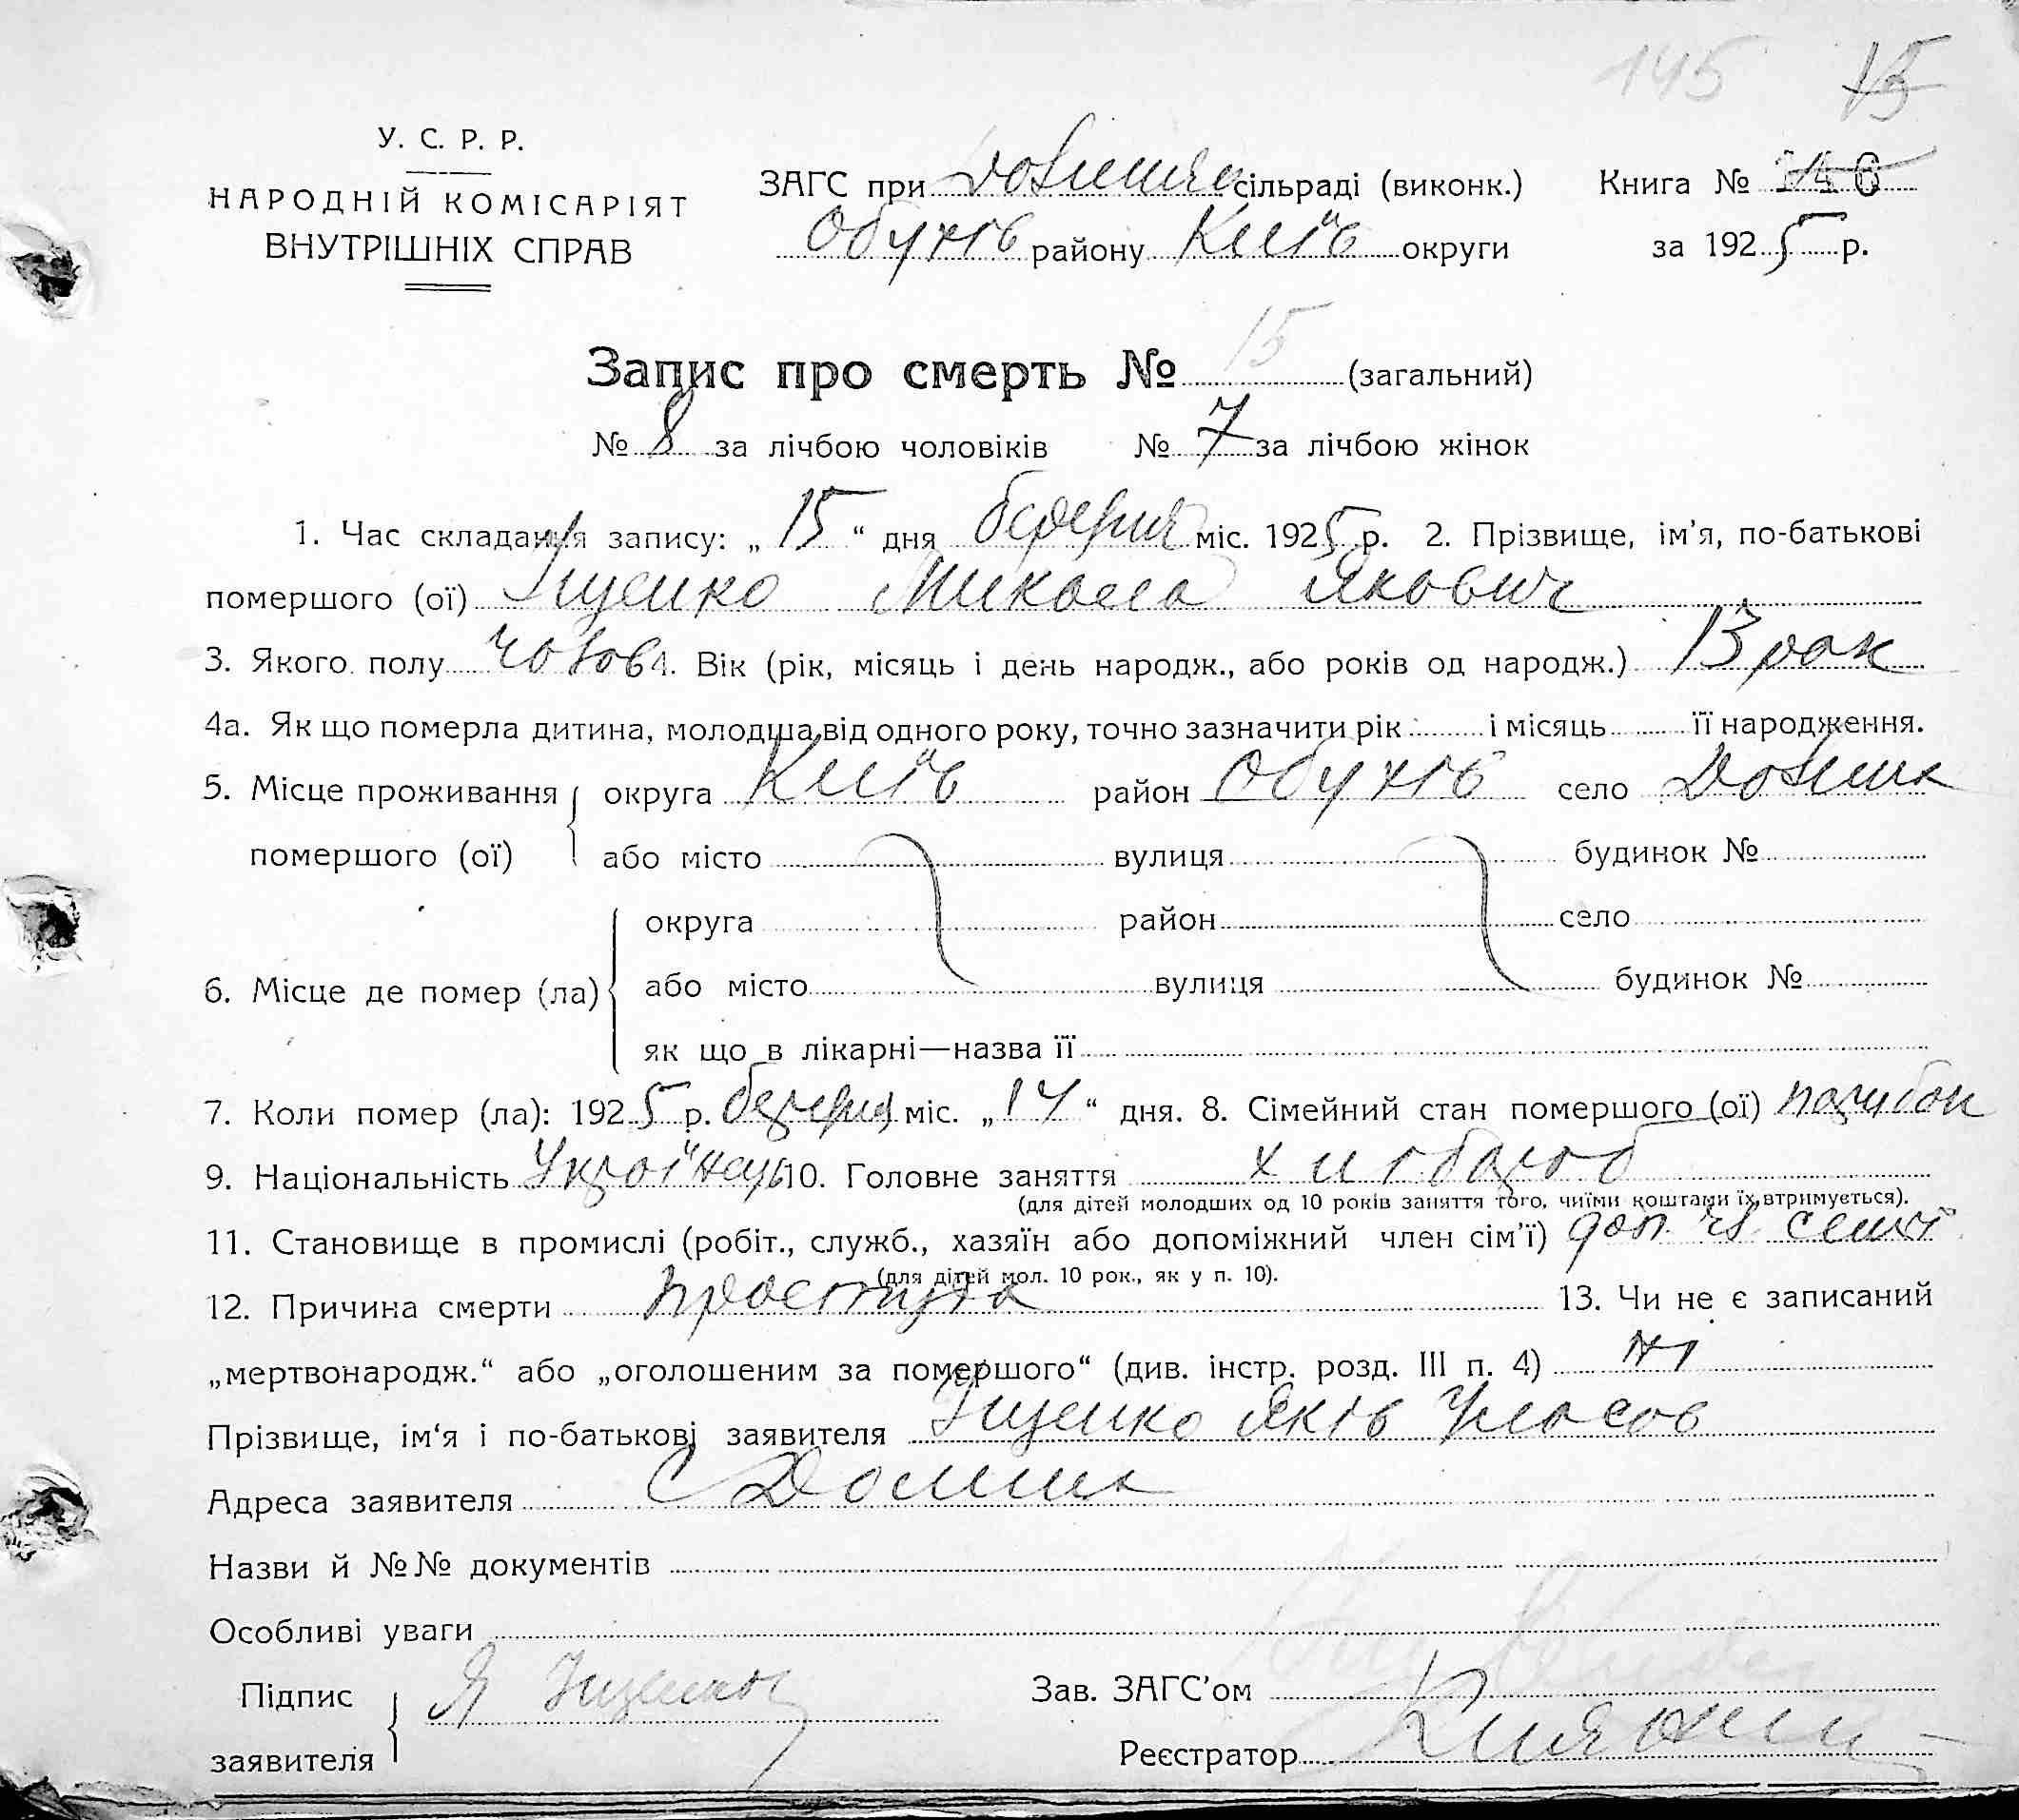 145 15
У. С. Р. Р.
НАРОДНІЙ КОМІСАРІЯТ
ВНУТРІШНІХ СПРАВ
ЗАГС при Долинян сільраді (виконк.) Книга №
Обухів району Київ округи за 1925 р.
Запис про смерть № 15 (загальний)
№ 8 за лічбою чоловіків № 7 за лічбою жінок
1. Час складання запису: „ 15 “ дня березня міс. 1925 р. 2. Прізвище, ім'я, по-батькові
помершого (ої) Іщенко Микола Якович
3. Якого полу чолов 4. Вік (рік, місяць і день народж., або років од народж.) 13 рок
4а. Як що померла дитина, молодша від одного року, точно зазначити рік і місяць її народження.
5. Місце проживання округа Київ район Обухів село Долина
помершого (ої) або місто вулиця будинок №
округа район село
6. Місце де помер (ла) або місто вулиця будинок №
як що в лікарні—назва її
7. Коли помер (ла): 1925 р. березня міс. „ 14 “ дня. 8. Сімейний стан помершого (ої) парубок
9. Національність Українець 10. Головне заняття хлібороб
(для дітей молодших од 10 років заняття того, чиїми коштами їх втримується).
11. Становище в промислі (робіт., служб., хазяїн або допоміжний член сім'ї) доп. чл. семї
(для дітей мол. 10 рок., як у п. 10).
12. Причина смерти простуда 13. Чи не є записаний
„мертвонародж.“ або „оголошеним за помершого“ (див. інстр. розд. III п. 4) ні
Прізвище, ім'я і по-батькові заявителя Іщенко Яків Власов
Адреса заявителя с Долина
Назви й №№ документів
Особливі уваги
Підпис Я Іщенко Зав. ЗАГС'ом
заявителя Реєстратор